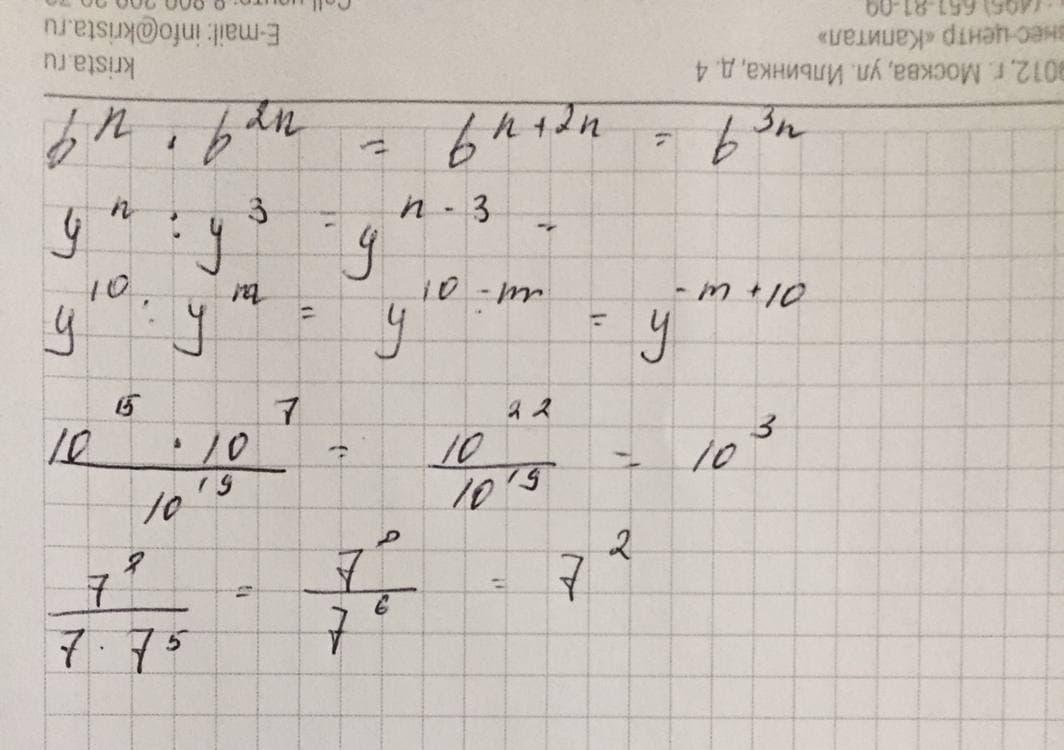 krista.ru
E-mail: info@krista.ru
012, г. Москва, ул. Ильинка, д. 4
знес-центр «Капитал»
(495) 651-81-09
b^n · b^{2n} = b^{n+2n} = b^{3n}
y^n : y^3 = y^{n-3} -
y^{10} : y^m = y^{10-m} = y^{-m+10}
10^{15} · 10^7 / 10^{19} = 10^{22} / 10^{19} = 10^3
7^8 / 7 · 7^5 = 7^8 / 7^6 = 7^2